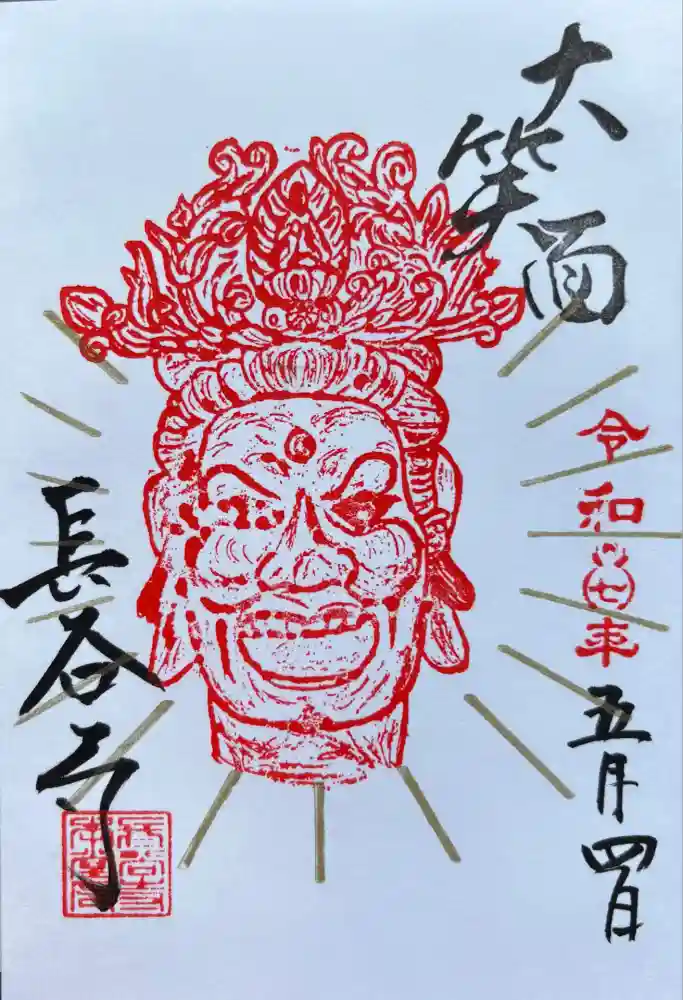 大笑面
令和七年
五月四日
長谷寺